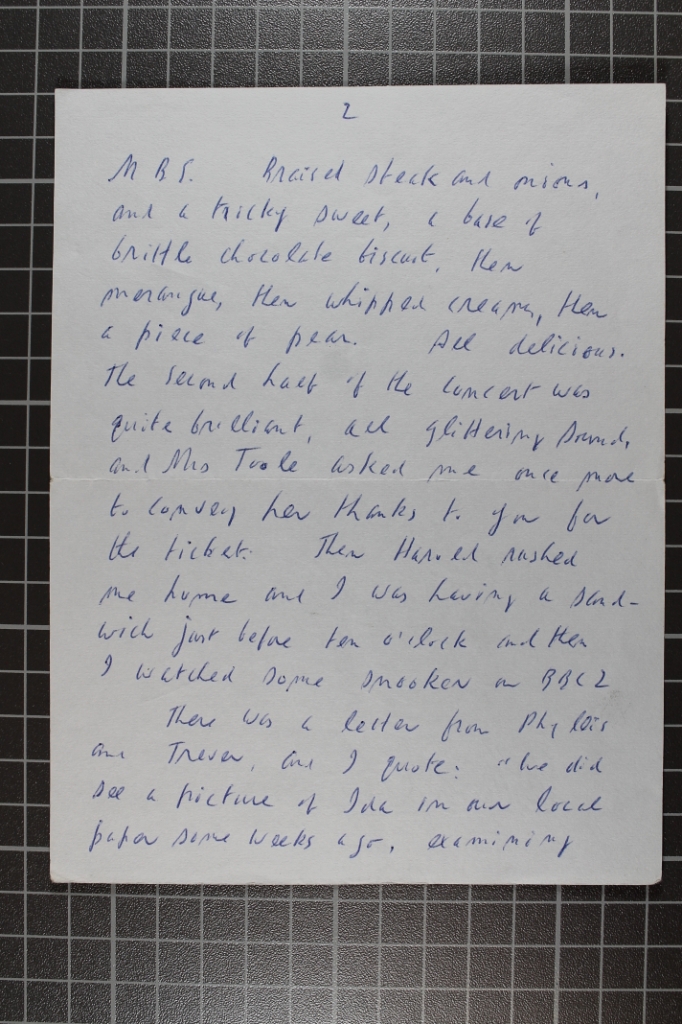 2
M B S. Braised steak and onions,
and a tricky sweet, a base of
brittle chocolate biscuit, then
merangue, then whipped cream, then
a piece of pear. All delicious.
The second half of the concert was
quite brilliant, all glittering sound,
and Mrs Toole asked me once more
to convey her thanks to you for
the ticket. Then Harold rushed
me home and I was having a sand-
wich just before ten o'clock and then
I watched some snooker on BBC 2
There was a letter from Phyllis
and Trevor, and I quote: "We did
see a picture of Ida in our local
paper some weeks ago, examining